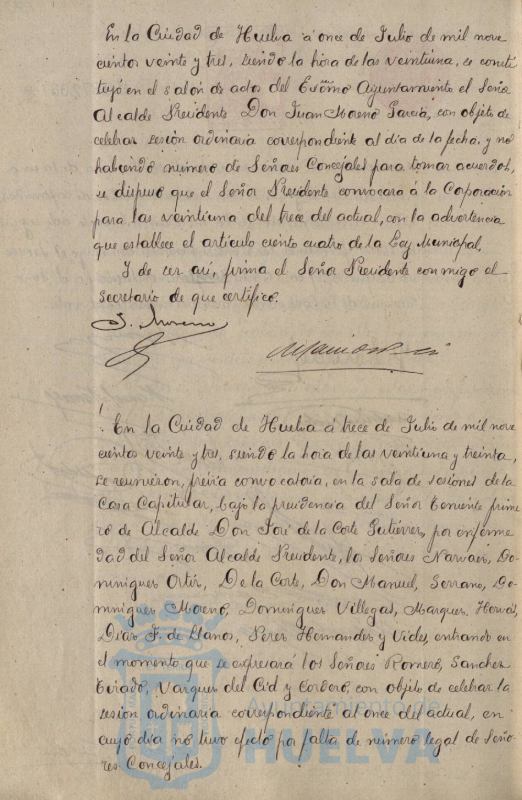 En la Ciudad de Huelva á once de Julio de mil nove
cientos veinte y tres, siendo la hora de las veintiuna, se consti
tuyó en el salón de actos del Excmo Ayuntamiento el Señor
Alcalde Presidente Don Juan Moreno García, con objeto de
celebrar sesión ordinaria correspondiente al día de la fecha, y no
habiendo número de Señores Concejales para tomar acuerdos,
se dispuso que el Señor Presidente convocara á la Coporación
para las veintiuna del trece del actual, con la advertencia
que establece el artículo ciento cuatro de la Ley Municipal.
Y de ser así, firma el Señor Presidente conmigo el
secretario de que certifico.
J. Moreno
En la Ciudad de Huelva á trece de Julio de mil nove
cientos veinte y tres, siendo la hora de las veintiuna y treinta,
se reunieron, previa convocatoria, en la sala de sesiones de la
Casa Capitular, bajo la presidencia del Señor Teniente prime
ro de Alcalde Don José de la Corte Gutiérrez, por enferme
dad del Señor Alcalde Presidente, los Señores Narvaes, Do-
minguez Ortiz, De la Corte, Don Manuel, Serrano, Do-
minguez Moreno, Dominguez Villegas, Marquez,
Diaz F. de Llanos, Perez Hernandez y Vides, entrando en
el momento que se expresará los Señores Romero, Sanchez
Tirado, Vazquez del Cid y Cordero, con objeto de celebrar la
sesión ordinaria correspondiente al once del actual, en
cuyo día no tuvo efecto por falta de número legal de Seño-
res Concejales.
Ayuntamiento de
HUELVA